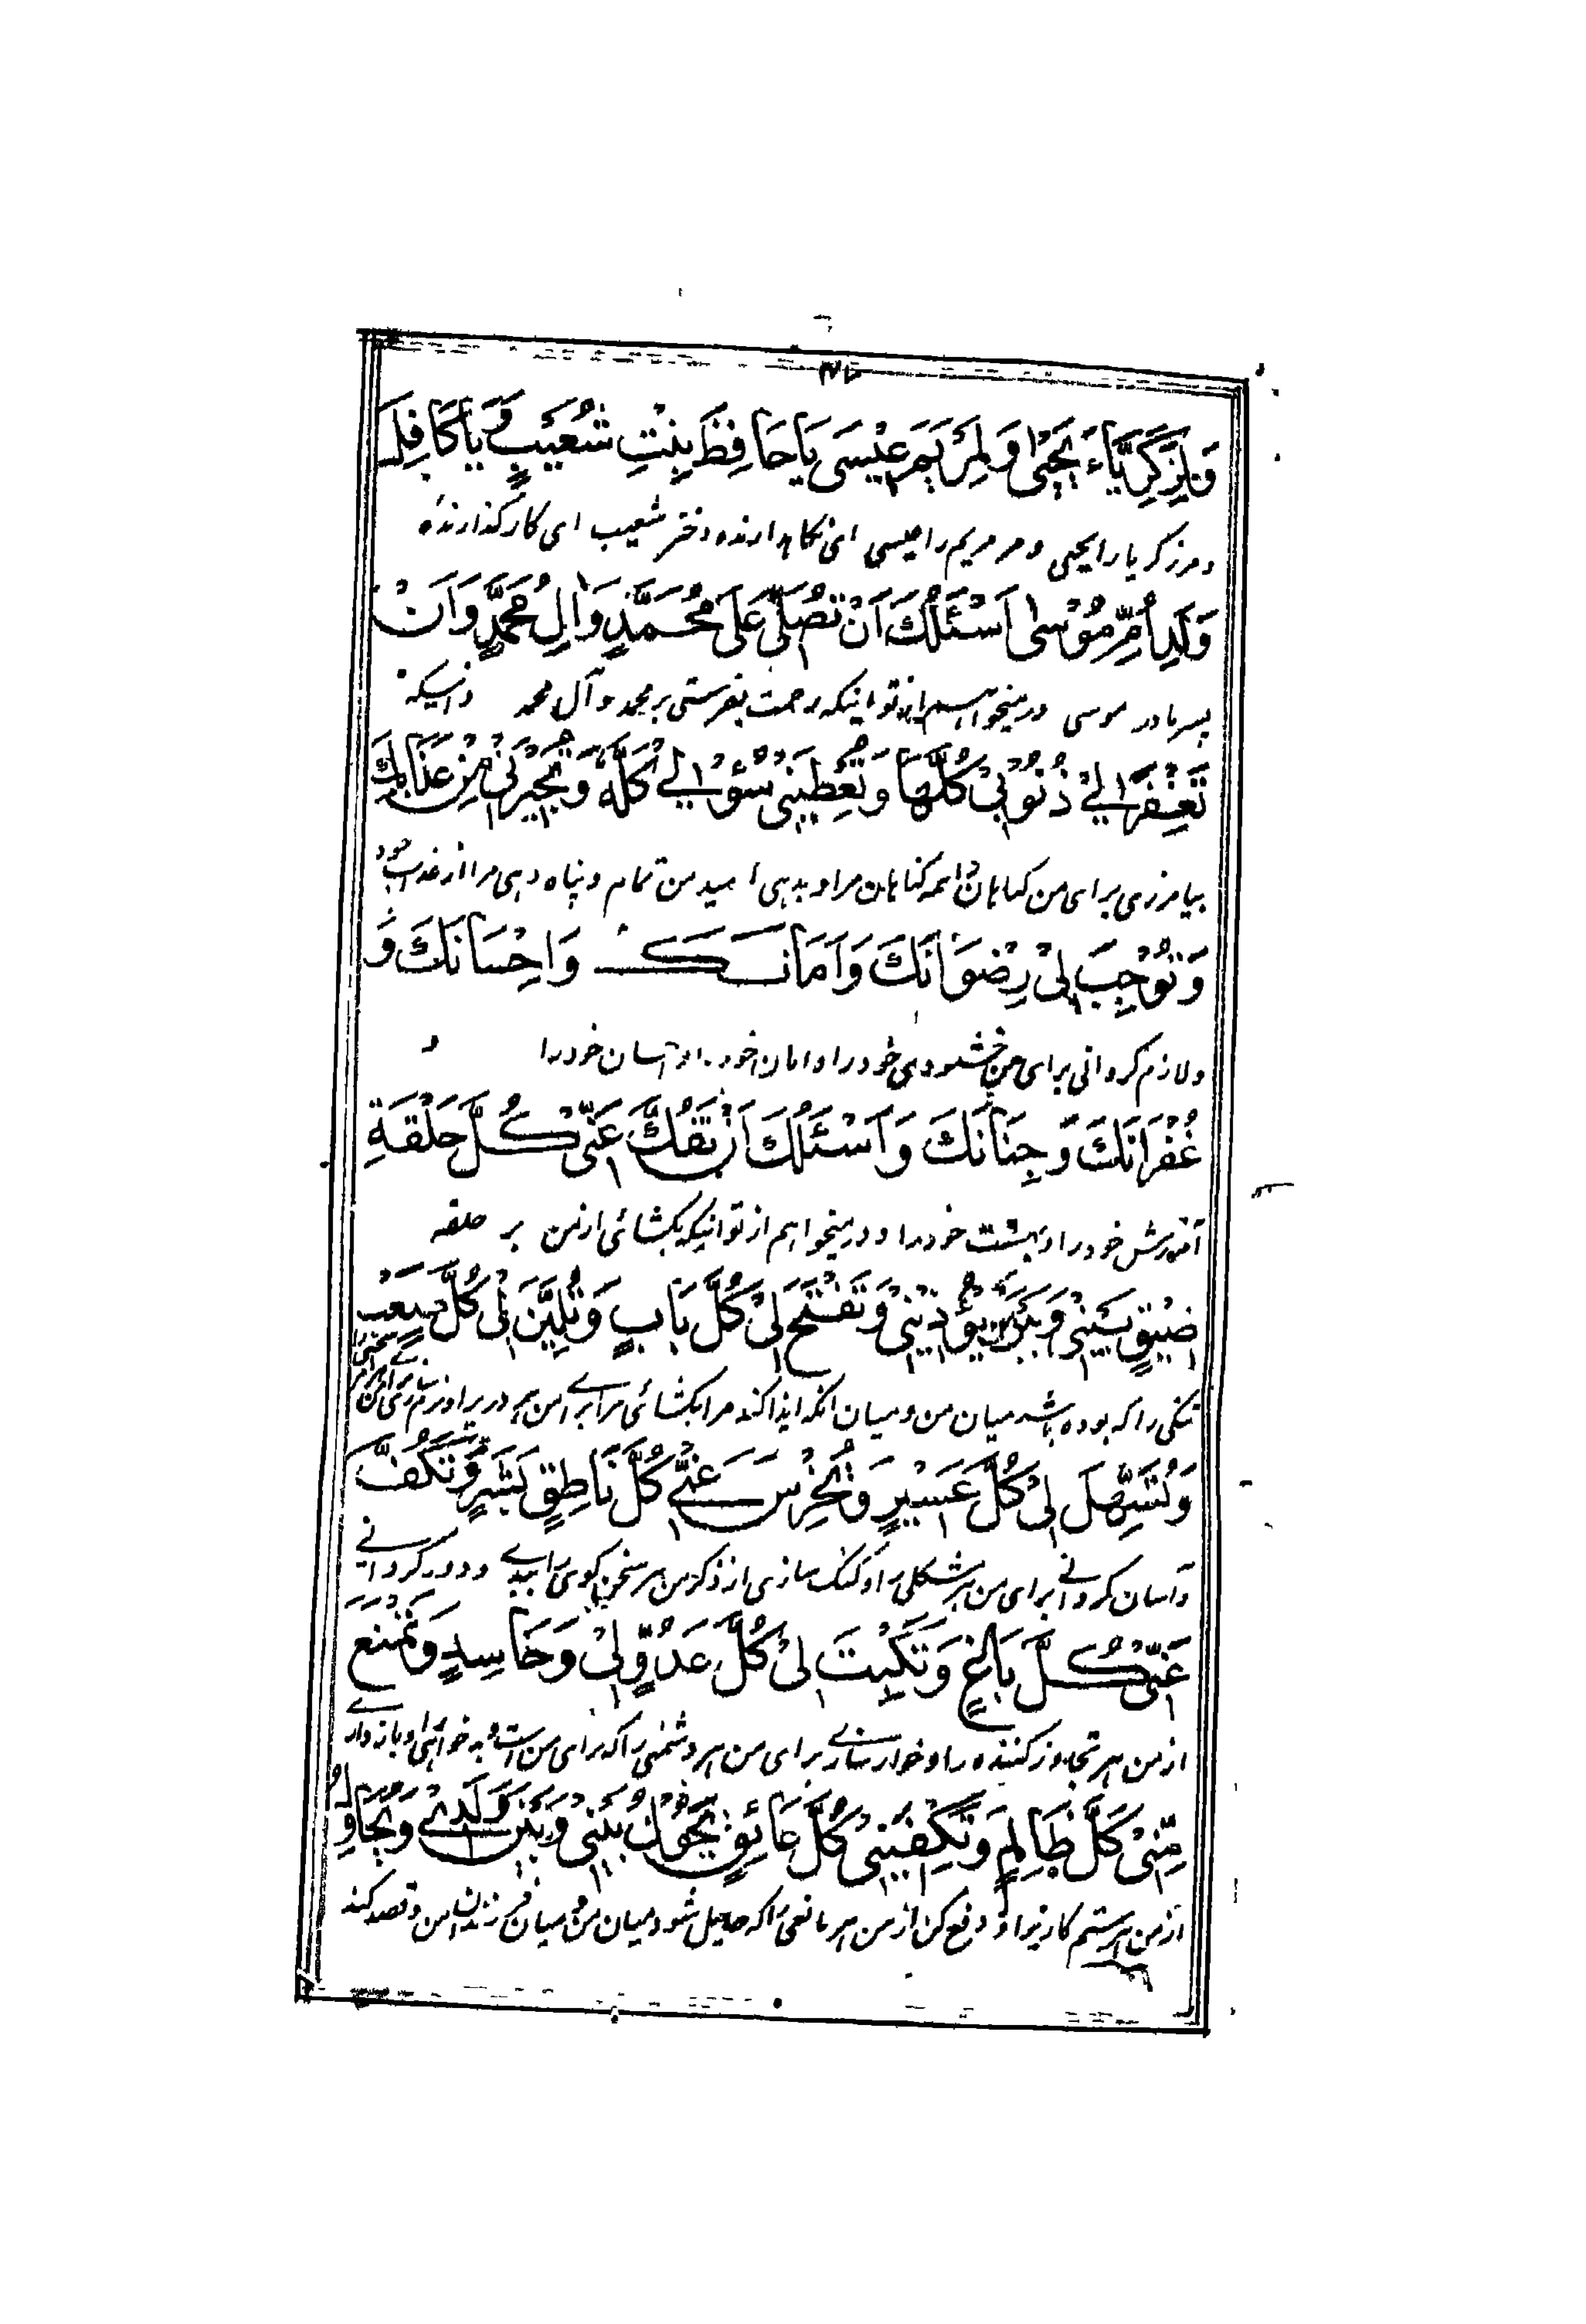 وَلِزَكَرِيَّاءَ يَحْيٰى وَلِمَرْيَمَ عِيْسَى يَا حَافِظَ بِنْتِ شُعَيْبٍ وَّ يَا كَافِلَ
ومرزکریا را یحیی ومر مریم را عیسی ای نگاهدارنده دختر شعیب ای کارگذارنده
وَلَدِ اُمِّ مُوْسٰى اَسْئَلُكَ اَنْ تُصَلِّىَ عَلَى مُحَمَّدٍ وَّاٰلِ مُحَمَّدٍ وَّاَنْ
پسر مادر موسی درمیخواهم از تو اینکه رحمت بفرستی بر محمد وآل محمد واینکه
تَغْفِرَ لِيْ ذُنُوْبِيْ كُلَّهَا وَتُعْطِيَنِىْ سُؤْلِيْ كُلَّهٗ وَتُجِيْرَنِىْ مِنْ عَذَابِكَ
بیامرزی برای من گناهان همه گناهان مرا وبدهی امید من تمام وپناه دهی مرا از عذاب خود
وَتُوْجِبَ لِىْ رِضْوَانَكَ وَاَمَانَكَ وَاِحْسَانَكَ وَ
ولازم گردانی برای من خوشنودی خود را وامان خود واحسان خود را و
غُفْرَانَكَ وَجِنَانَكَ وَاَسْئَلُكَ اَنْ تَفُكَّ عَنِّىْ كُلَّ حَلْقَةِ
آمرزش خود را وبهشت خود را ودرمیخواهم از تو اینکه بگشائی از من هر حلقه
ضِيْقٍ بَيْنِىْ وَبَيْنَ مَنْ يُؤْذِيْنِىْ وَتَفْتَحَ لِىْ كُلَّ بَابٍ وَتُلَيِّنَ لِىْ كُلَّ صَعْبٍ
تنگی را که بوده باشد میان من ومیان آنکه ایذا کند مرا وبگشائی برای من هر در را ونرم
وَّتُسَهِّلَ لِىْ كُلَّ عَسِيْرٍ وَتُخْرِسَ عَنِّىْ كُلَّ نَاطِقٍ بِشَرٍّ وَّتَكُفَّ
وآسان گردانی برای من هر مشکل را وگنگ سازی از ذکر من هر سخن گوی را ببدی ودور گردانی
عَنِّىْ كُلَّ بَاغٍ وَتَكْبِتَ لِىْ كُلَّ عَدُوٍّ لِىْ وَحَاسِدٍ وَتَمْنَعَ
از من هر تجاوز کننده را وخوار سازی برای من هر دشمنی را که برای من است وبدخواهی را وبازداری
مِنِّىْ كُلَّ ظَالِمٍ وَتَكْفِيَنِىْ كُلَّ عَائِقٍ يَحُوْلُ بَيْنِىْ وَبَيْنَ وَلَدِىْ وَيُحَاوِلُ
از من هر ستم کار را ودفع کن از من هر مانعی را که حایل شود میان من ومیان فرزندان من وقصد کند